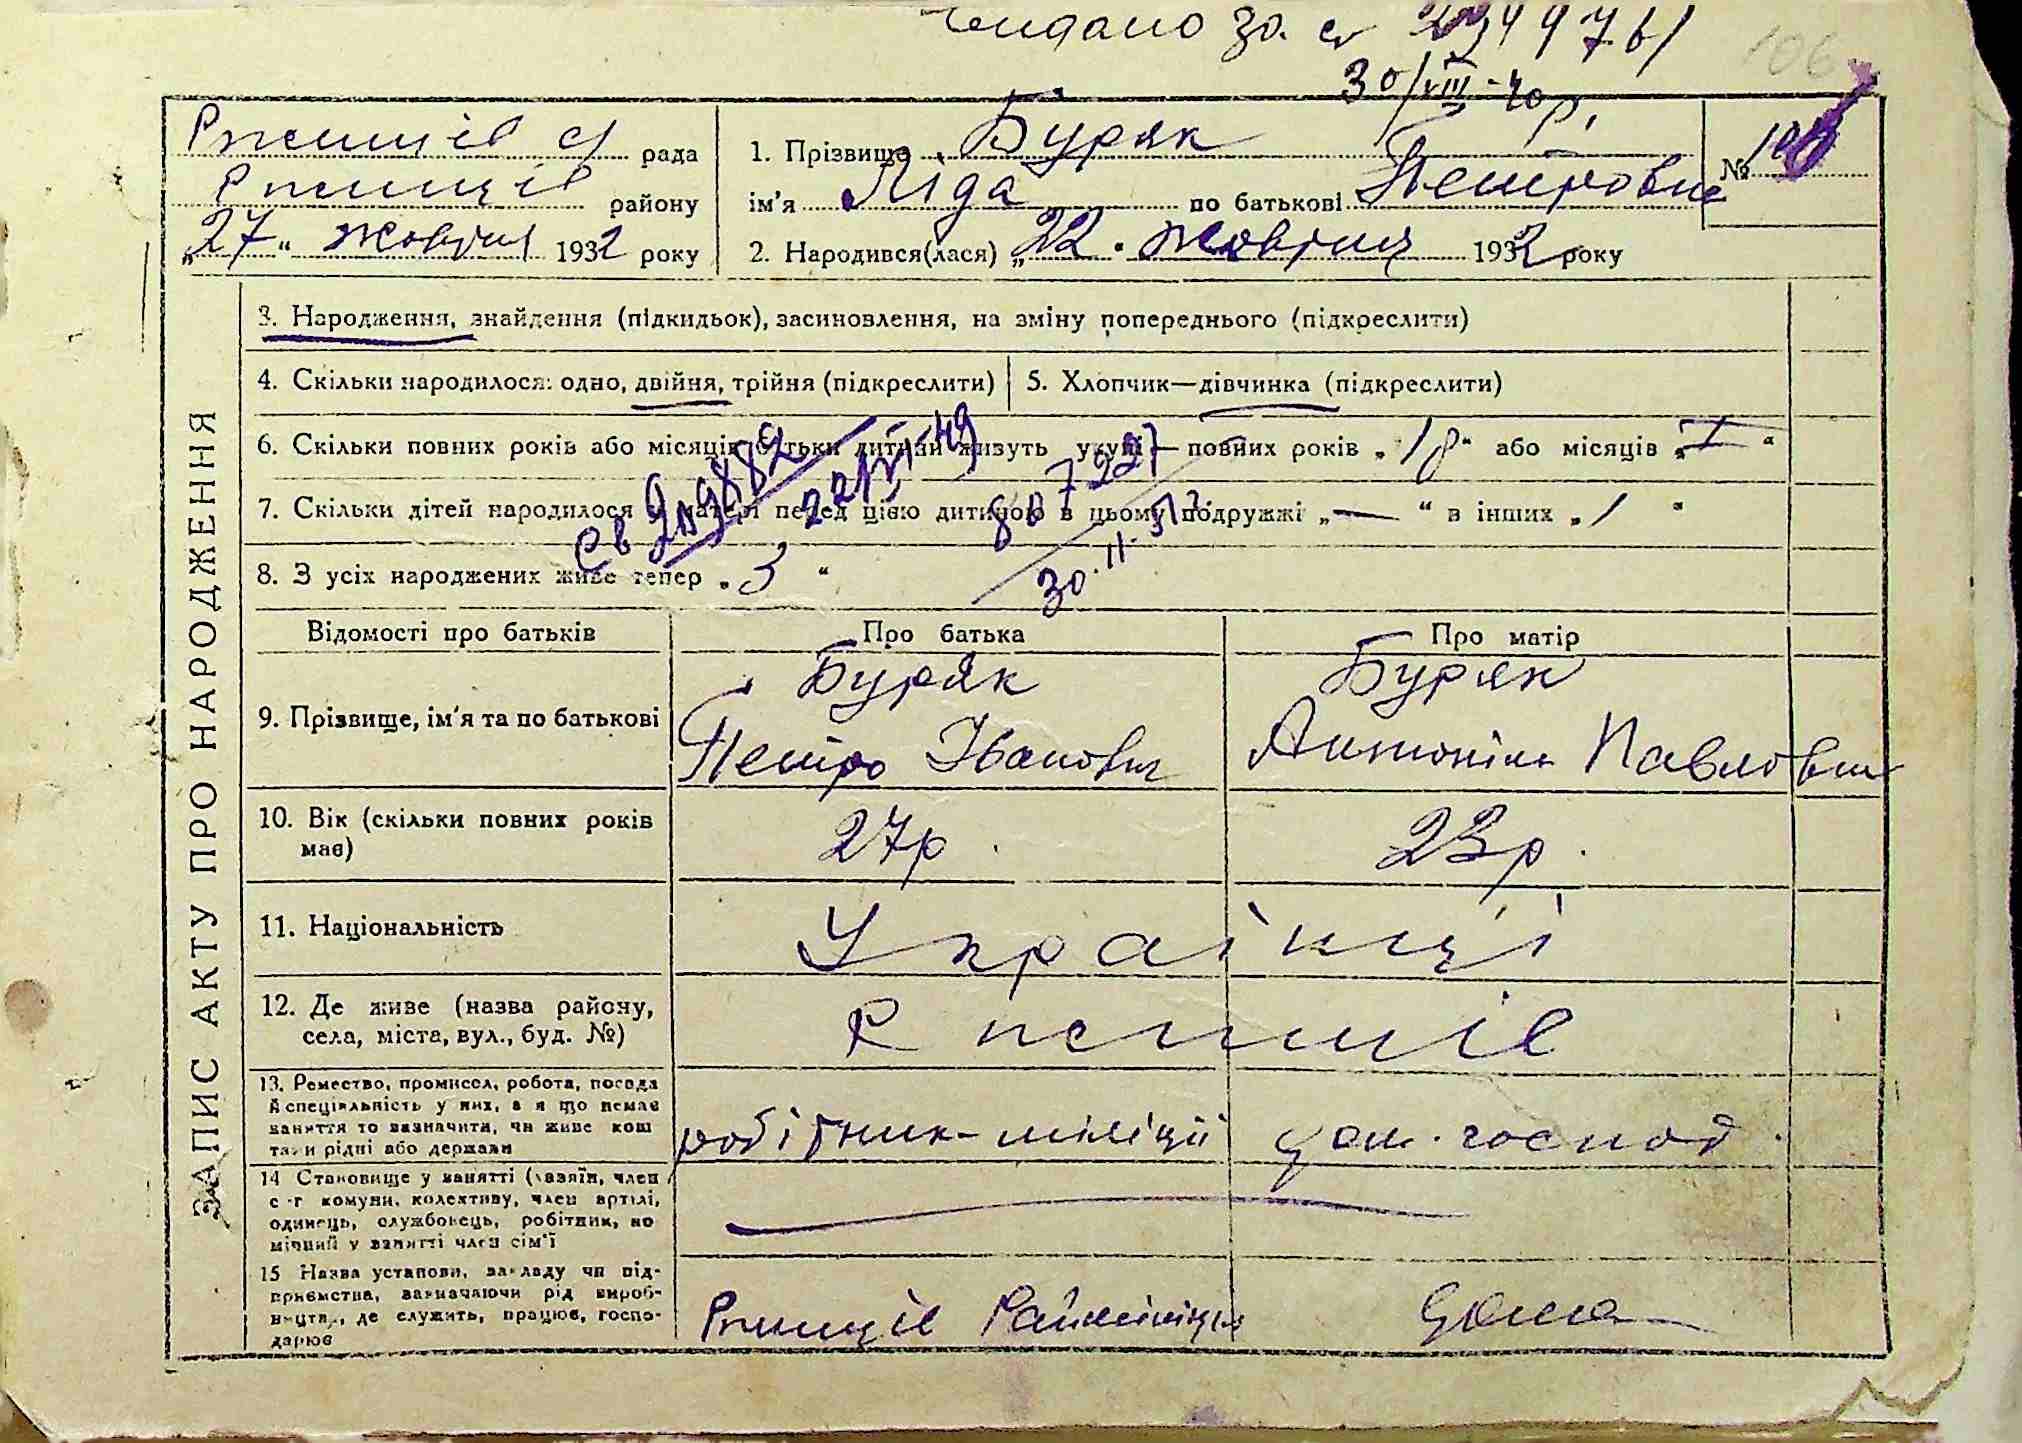 106
30/VIII-40р.
рада
району
„27“ жовтня 1932 року
1. Прізвище Буряк
ім'я Ліда по батькові Петровна
2. Народився(лася) „22“ жовтня 1932 року
№ 106
ЗАПИС АКТУ ПРО НАРОДЖЕННЯ
3. Народження, знайдення (підкидьок), засиновлення, на зміну попереднього (підкреслити)
4. Скільки народилося: одно, двійня, трійня (підкреслити)
5. Хлопчик—дівчинка (підкреслити)
6. Скільки повних років або місяців батьки дитини живуть укупі— повних років „ “ або місяців „ “
7. Скільки дітей народилося у матері перед цією дитиною в цьому подружжі „—“ в інших „1“
8. З усіх народжених живе тепер „3“
30.11.
Відомості про батьків
Про батька
Про матір
9. Прізвище, ім'я та по батькові
Буряк
Петро Іванович
Буряк
Антоніна Павловна
10. Вік (скільки повних років має)
27р
23р.
11. Національність
Українці
12. Де живе (назва району,
села, міста, вул., буд. №)
13. Ремество, промисел, робота, посада
й спеціяльність у них, а я що немає
заняття то зазначити, чи живе кош
тами рідні або держави
робітник-міліції
дом. господ.
14 Становище у занятті (хазяїн, член
с-г комуни, колективу, член артілі,
одинець, службовець, робітник, по
мічний у занятті член сім'ї
15 Назва установи, закладу чи під-
приємства, зазначаючи рід вироб-
ництва, де служить, працює, госпо-
дарює
Райміліція
дома